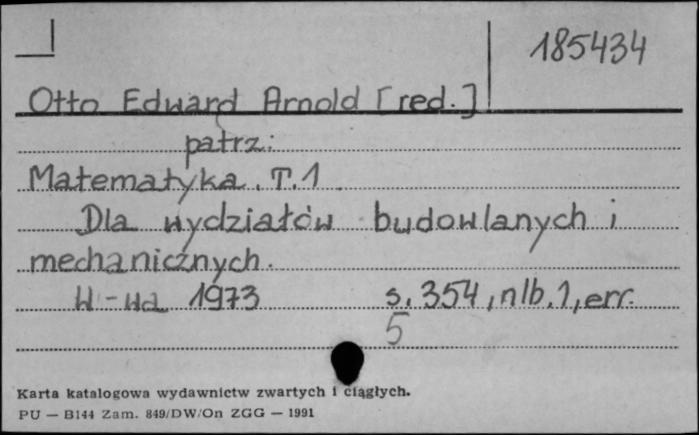 185434
Otto Edward Arnold [red.]
patrz:
Matematyka. T.1
Dla wydziałów budowlanych i
mechanicznych.
W-wa 1973 s. 354, nlb. 1, err.
5
Karta katalogowa wydawnictw zwartych i ciągłych.
PU — B144 Zam. 849/DW/On ZGG — 1991